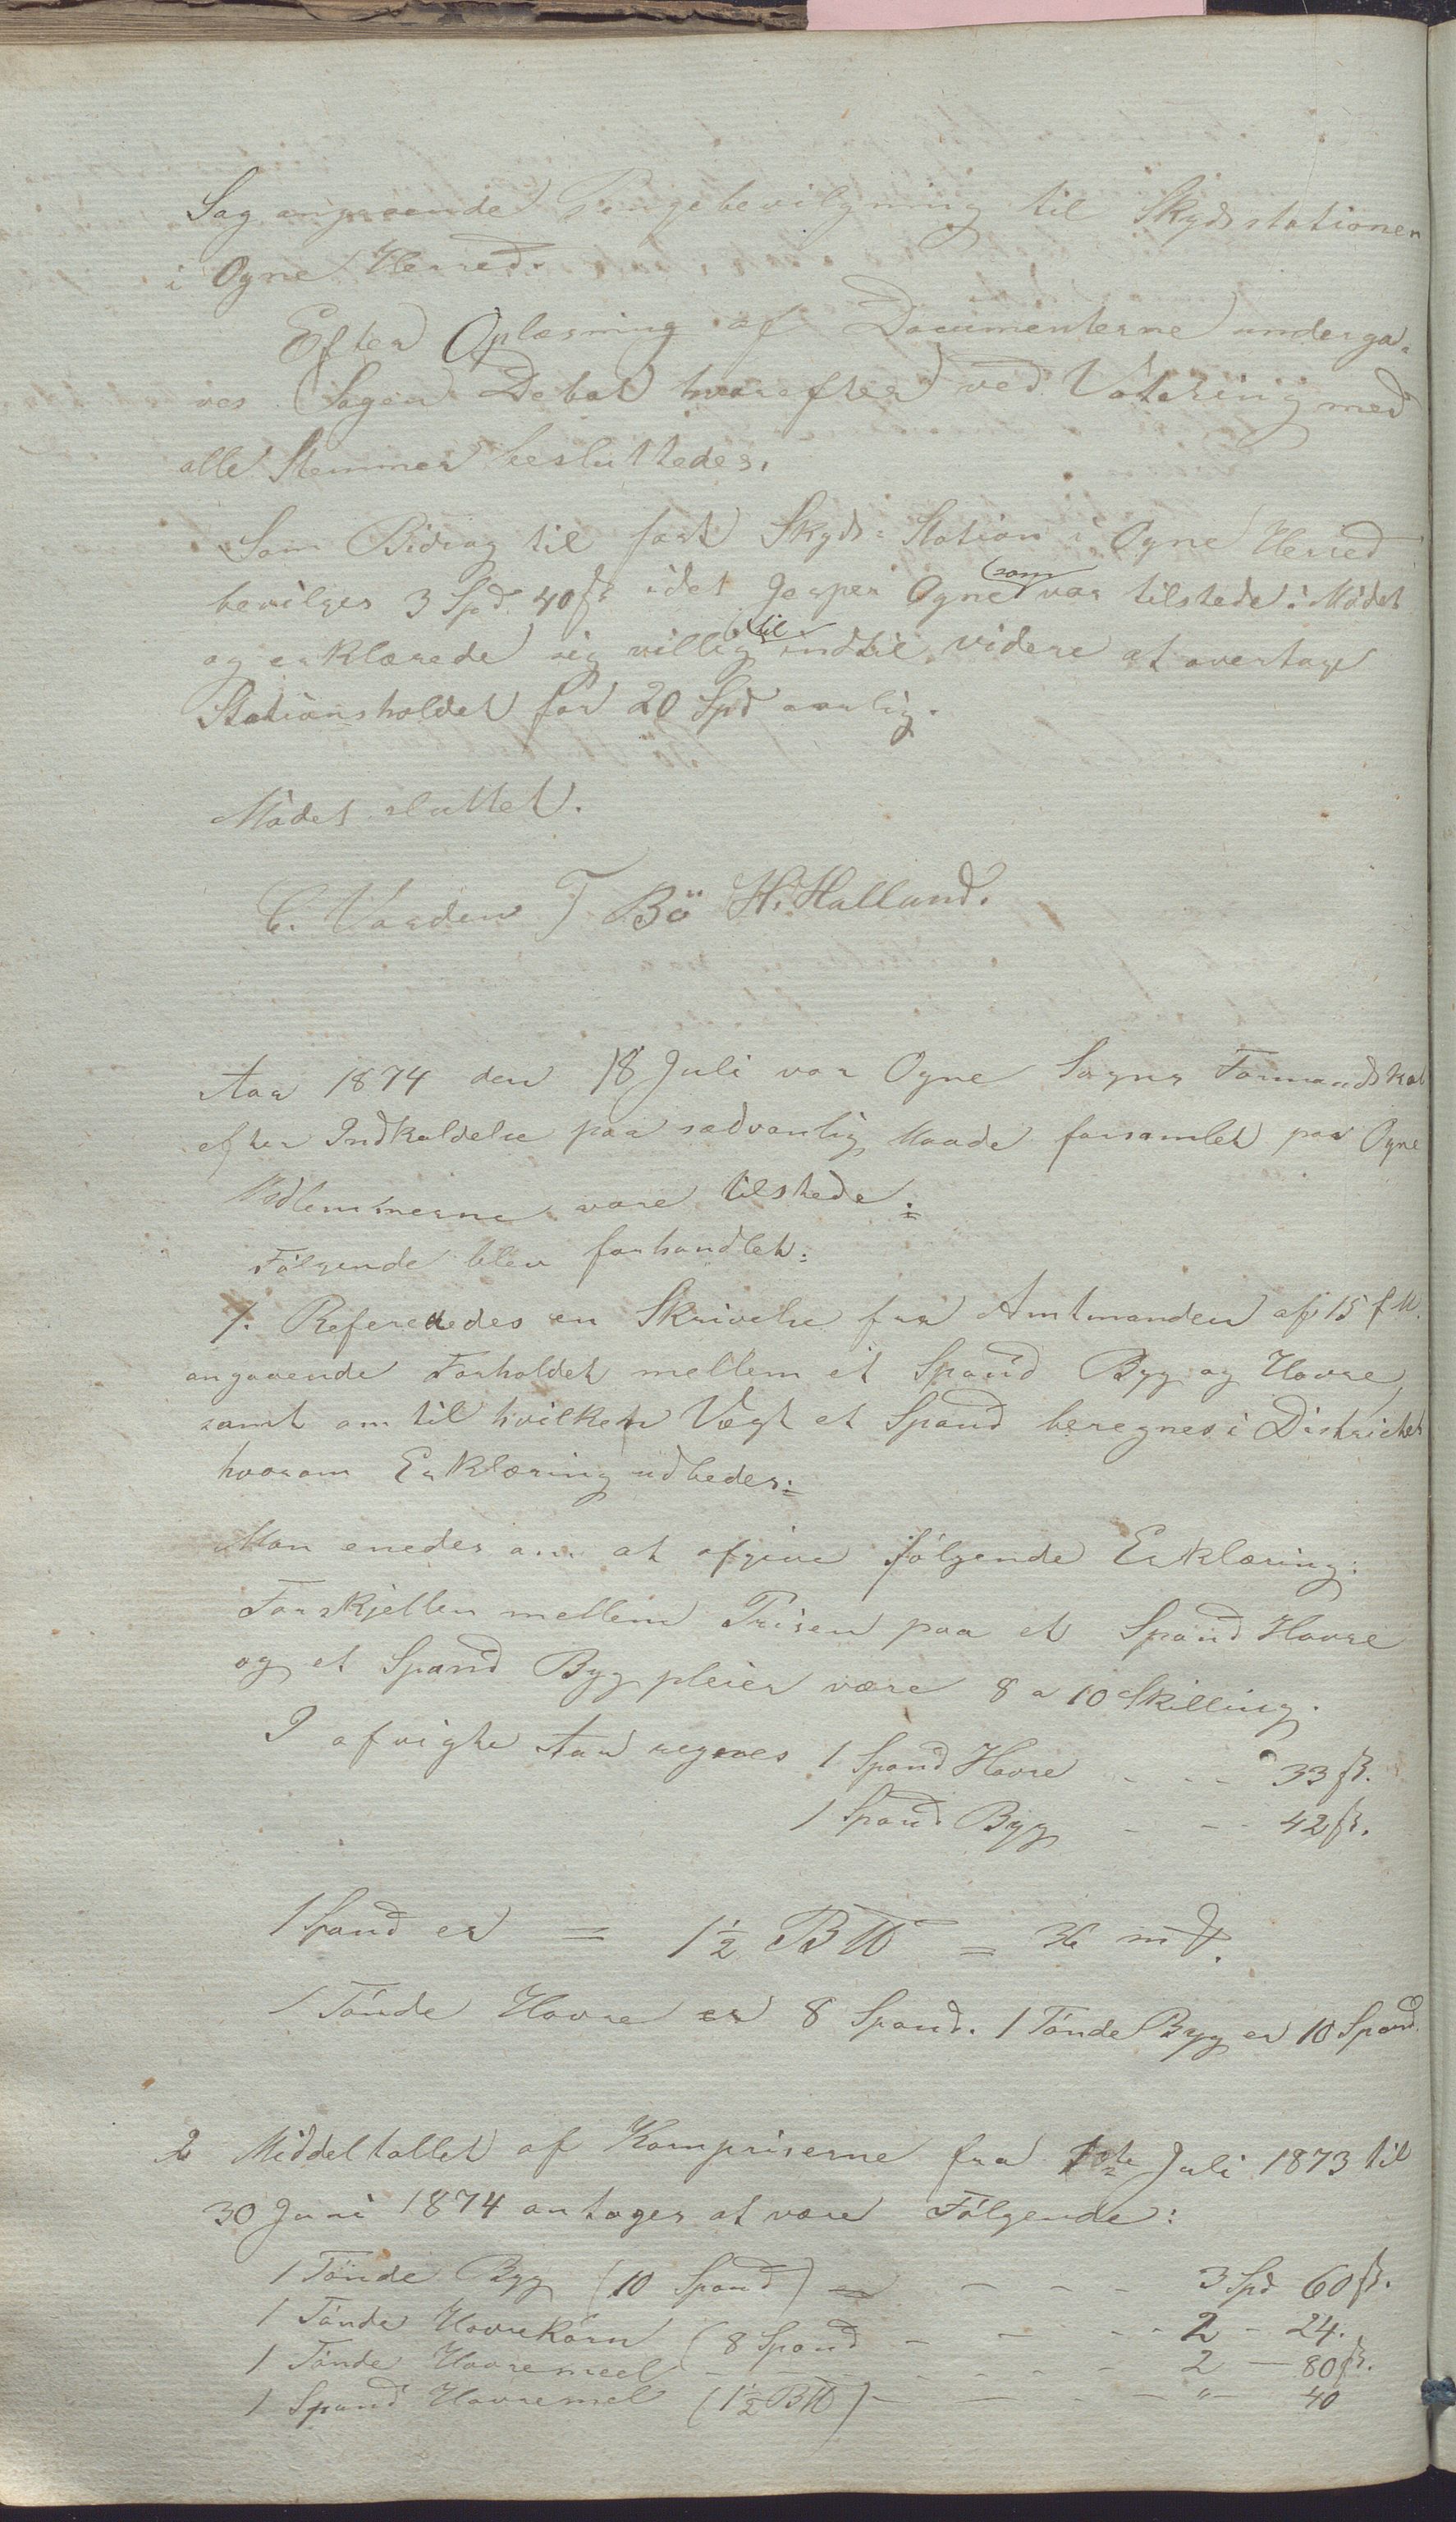 Sag angaaende Pengebevilgning til Skydsstationen
i Ogne Herred.
Efter Oplæsning af Documenterne underga-
ves Sagen Debat hvorefter ved Votering med
alle Stemmer besluttedes.
Som Bidrag til fast Skyds-Station i Ogne Herred
bevilges 3 Spd. 40 ß idet Jesper Ogne som var tilstede i Mödet
og erklærede sig villig til indtil videre at overtage
Stationsholdet for 20 Spd aarlig.
Mödet sluttet.
C. Varden T Bö H. Halland.
Aar 1874 den 18 Juli var Ogne Sogns Formandskab
efter Indkaldelse paa sædvanlig Maade forsamlet paa Ogne
Medlemmerne vare tilstede:
Fölgende blev forhandlet:
1. Refereredes en Skrivelse fra Amtmanden af 15 f M.
angaaende Forholdet mellem et Spand Byg og Havre,
samt om til hvilken Vægt et Spand beregnes i Districtet
hvorom Erklæring udbedes:
Man enedes om at afgive fölgende Erklæring:
Forskjellen mellem Prisen paa et Spand Havre
og et Spand Byg pleier være 8 a 10 Skilling.
I afvigte Aar regnes 1 Spand Havre - - - 33 ß.
1 Spand Byg - - - 42 ß.
1 Spand er = 1½ B℔ = 36 m℔.
1 Tönde Havre er 8 Spand. 1 Tönde Byg er 10 Spand.
2 Middeltallet af Kornpriserne fra 1ste Juli 1873 til
30 Juni 1874 antages at være Fölgende:
1 Tönde Byg (10 Spand) - - - - 3 Spd 60 ß.
1 Tönde Havrekorn (8 Spand - - - - 2 - 24.
1 Tönde Havremeel - - - - - - 2 - 80 ß.
1 Spand Havremel (1½ B℔) - - - - " - 40